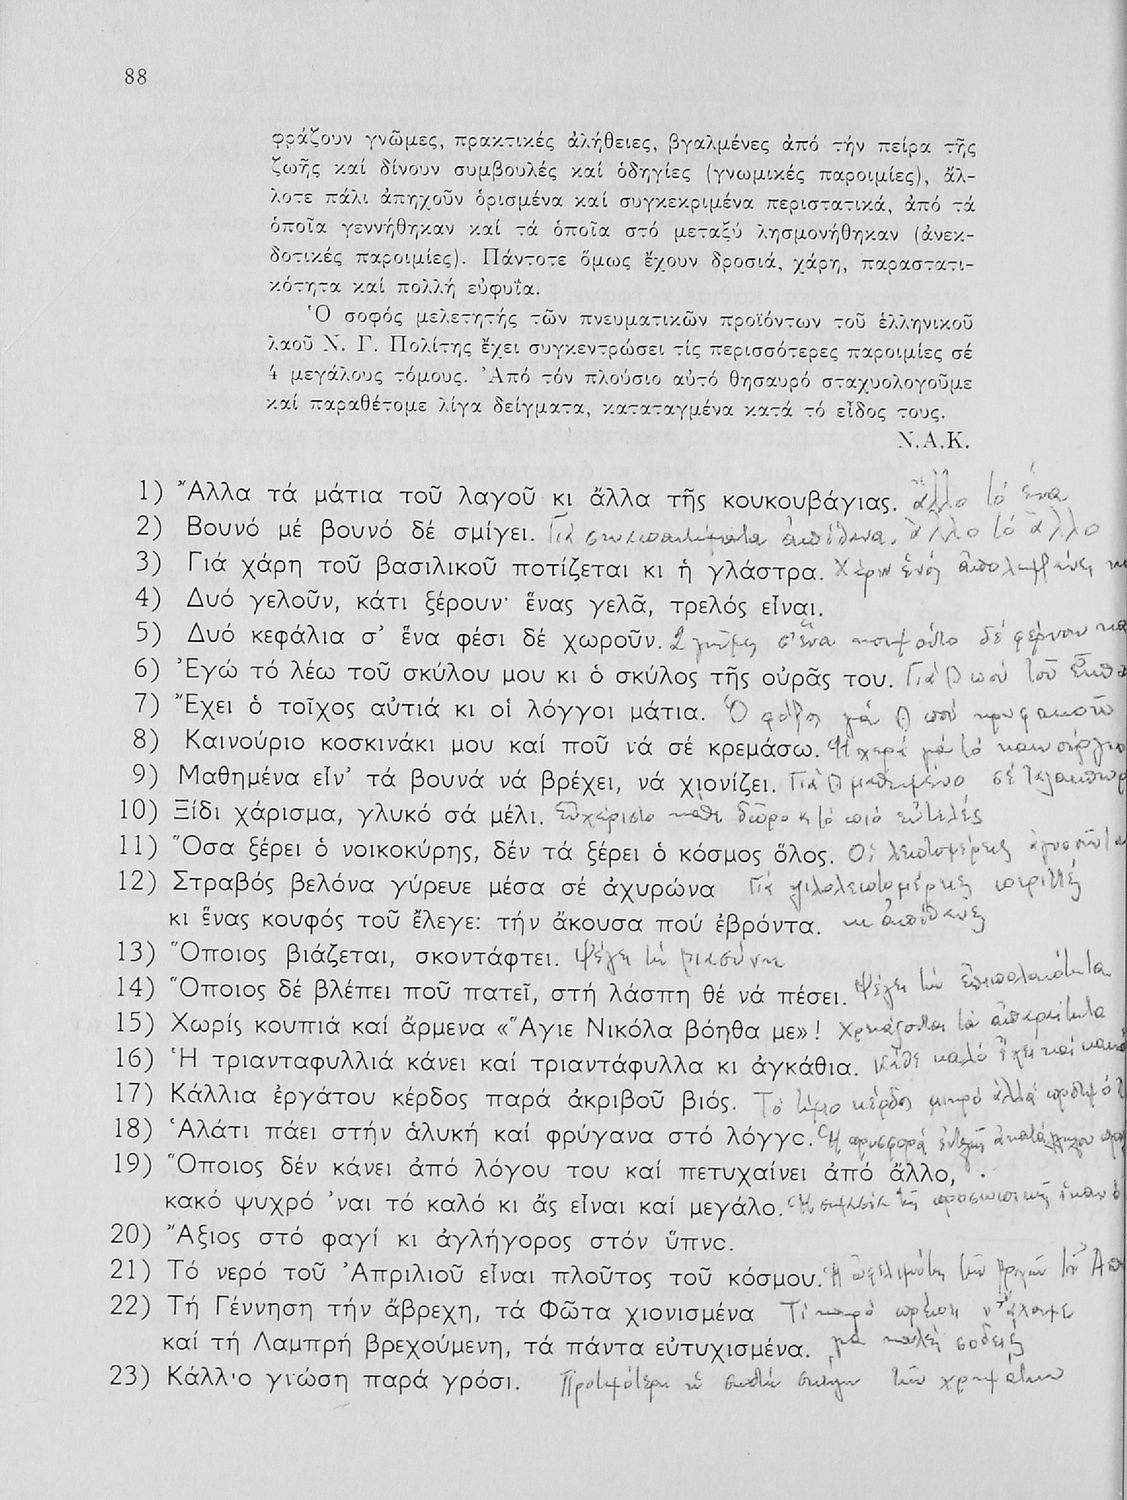 88
φράζουν γνῶμες, πρακτικές ἀλήθειες, βγαλμένες ἀπό τήν πείρα τῆς
ζωῆς καί δίνουν συμβουλές καί ὁδηγίες (γνωμικές παροιμίες), ἄλ-
λοτε πάλι ἀπηχοῦν ὁρισμένα καί συγκεκριμένα περιστατικά, ἀπό τά
ὁποῖα γεννήθηκαν καί τά ὁποῖα στό μεταξύ λησμονήθηκαν (ἀνεκ-
δοτικές παροιμίες). Πάντοτε ὅμως ἔχουν δροσιά, χάρη, παραστατι-
κότητα καί πολλή εὐφυΐα.
Ὁ σοφός μελετητής τῶν πνευματικῶν προϊόντων τοῦ ἑλληνικοῦ
λαοῦ Ν. Γ. Πολίτης ἔχει συγκεντρώσει τίς περισσότερες παροιμίες σέ
4 μεγάλους τόμους. Ἀπό τόν πλούσιο αὐτό θησαυρό σταχυολογοῦμε
καί παραθέτομε λίγα δείγματα, καταταγμένα κατά τό εἶδος τους.
Ν.Α.Κ.
1) Ἄλλα τά μάτια τοῦ λαγοῦ κι ἄλλα τῆς κουκουβάγιας. ἄλλο τό ἕνα
2) Βουνό μέ βουνό δέ σμίγει. Γιά ἄλλο τό ἄλλο
3) Γιά χάρη τοῦ βασιλικοῦ ποτίζεται κι ἡ γλάστρα. Χάριν ἑνός
4) Δυό γελοῦν, κάτι ξέρουν· ἕνας γελᾶ, τρελός εἶναι.
5) Δυό κεφάλια σ' ἕνα φέσι δέ χωροῦν. 2 γνῶμες σ' ἕνα δέ φέρνουν
6) Ἐγώ τό λέω τοῦ σκύλου μου κι ὁ σκύλος τῆς οὐρᾶς του. Γιά
7) Ἔχει ὁ τοῖχος αὐτιά κι οἱ λόγγοι μάτια. Ὁ φόβος
8) Καινούριο κοσκινάκι μου καί ποῦ νά σέ κρεμάσω. Ἡ χαρά γιά τό
9) Μαθημένα εἶν' τά βουνά νά βρέχει, νά χιονίζει. Γιά μαθημένο σέ
10) Ξίδι χάρισμα, γλυκό σά μέλι. Εὐχάριστο κάθε δῶρο κ τό πιό εὐτελές
11) Ὅσα ξέρει ὁ νοικοκύρης, δέν τά ξέρει ὁ κόσμος ὅλος. Οἱ λεπτομέρειες
12) Στραβός βελόνα γύρευε μέσα σέ ἀχυρώνα Γιά
κι ἕνας κουφός τοῦ ἔλεγε: τήν ἄκουσα πού ἐβρόντα.
13) Ὅποιος βιάζεται, σκοντάφτει. Ψέγει τή βιασύνη
14) Ὅποιος δέ βλέπει ποῦ πατεῖ, στή λάσπη θέ νά πέσει. Ψέγει τήν ἐπιπολαιότητα
15) Χωρίς κουπιά καί ἄρμενα «Ἅγιε Νικόλα βόηθα με»! Χρειάζονται τά ἀπαραίτητα
16) Ἡ τριανταφυλλιά κάνει καί τριαντάφυλλα κι ἀγκάθια. Κάθε καλό ἔχει καί κακό
17) Κάλλια ἐργάτου κέρδος παρά ἀκριβοῦ βιός. Τό τίμιο κέρδος μικρό ἀλλά
18) Ἁλάτι πάει στήν ἁλυκή καί φρύγανα στό λόγγο. Ἡ προσφορά
19) Ὅποιος δέν κάνει ἀπό λόγου του καί πετυχαίνει ἀπό ἄλλο,
κακό ψυχρό 'ναι τό καλό κι ἄς εἶναι καί μεγάλο. Ἡ σημασία τῆς προσωπικῆς
20) Ἄξιος στό φαγί κι ἀγλήγορος στόν ὕπνο.
21) Τό νερό τοῦ Ἀπριλιοῦ εἶναι πλοῦτος τοῦ κόσμου. Ἡ ὠφελιμότης τῶν βροχῶν τοῦ
22) Τή Γέννηση τήν ἄβρεχη, τά Φῶτα χιονισμένα Τί καιρό πρέπει ν' ἔχουμε
καί τή Λαμπρή βρεχούμενη, τά πάντα εὐτυχισμένα. γιά καλές σοδειές
23) Κάλλιο γνώση παρά γρόσι. Προτιμότερη ἡ τῶν χρημάτων